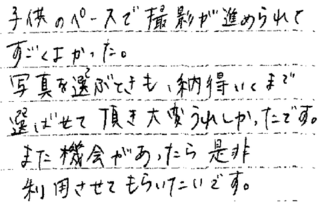 子供のペースで撮影が進められて
すごくよかった。
写真を選ぶときも、納得いくまで
選ばせて頂き大変うれしかったです。
また機会があったら是非
利用させてもらいたいです。